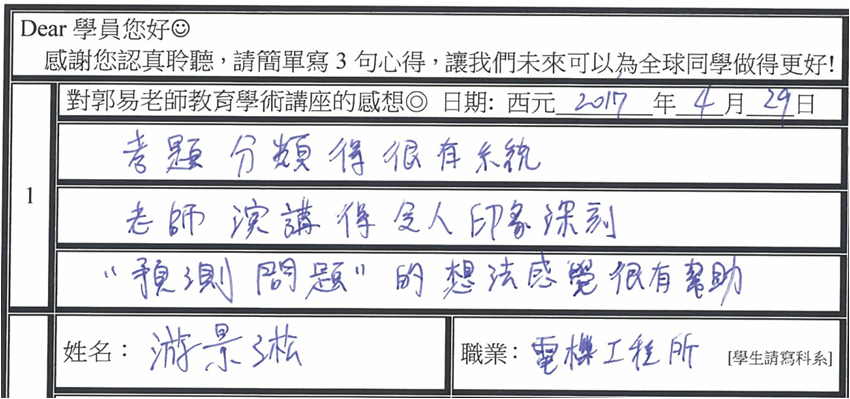 Dear 學員您好☺
感謝您認真聆聽，請簡單寫 3 句心得，讓我們未來可以為全球同學做得更好!
1
對郭易老師教育學術講座的感想◎ 日期: 西元 2017 年 4 月 29 日
考題分類得很有系統
老師演講得令人印象深刻
"預測問題"的想法感覺很有幫助
姓名： 游景淞 職業： 電機工程所 [學生請寫科系]